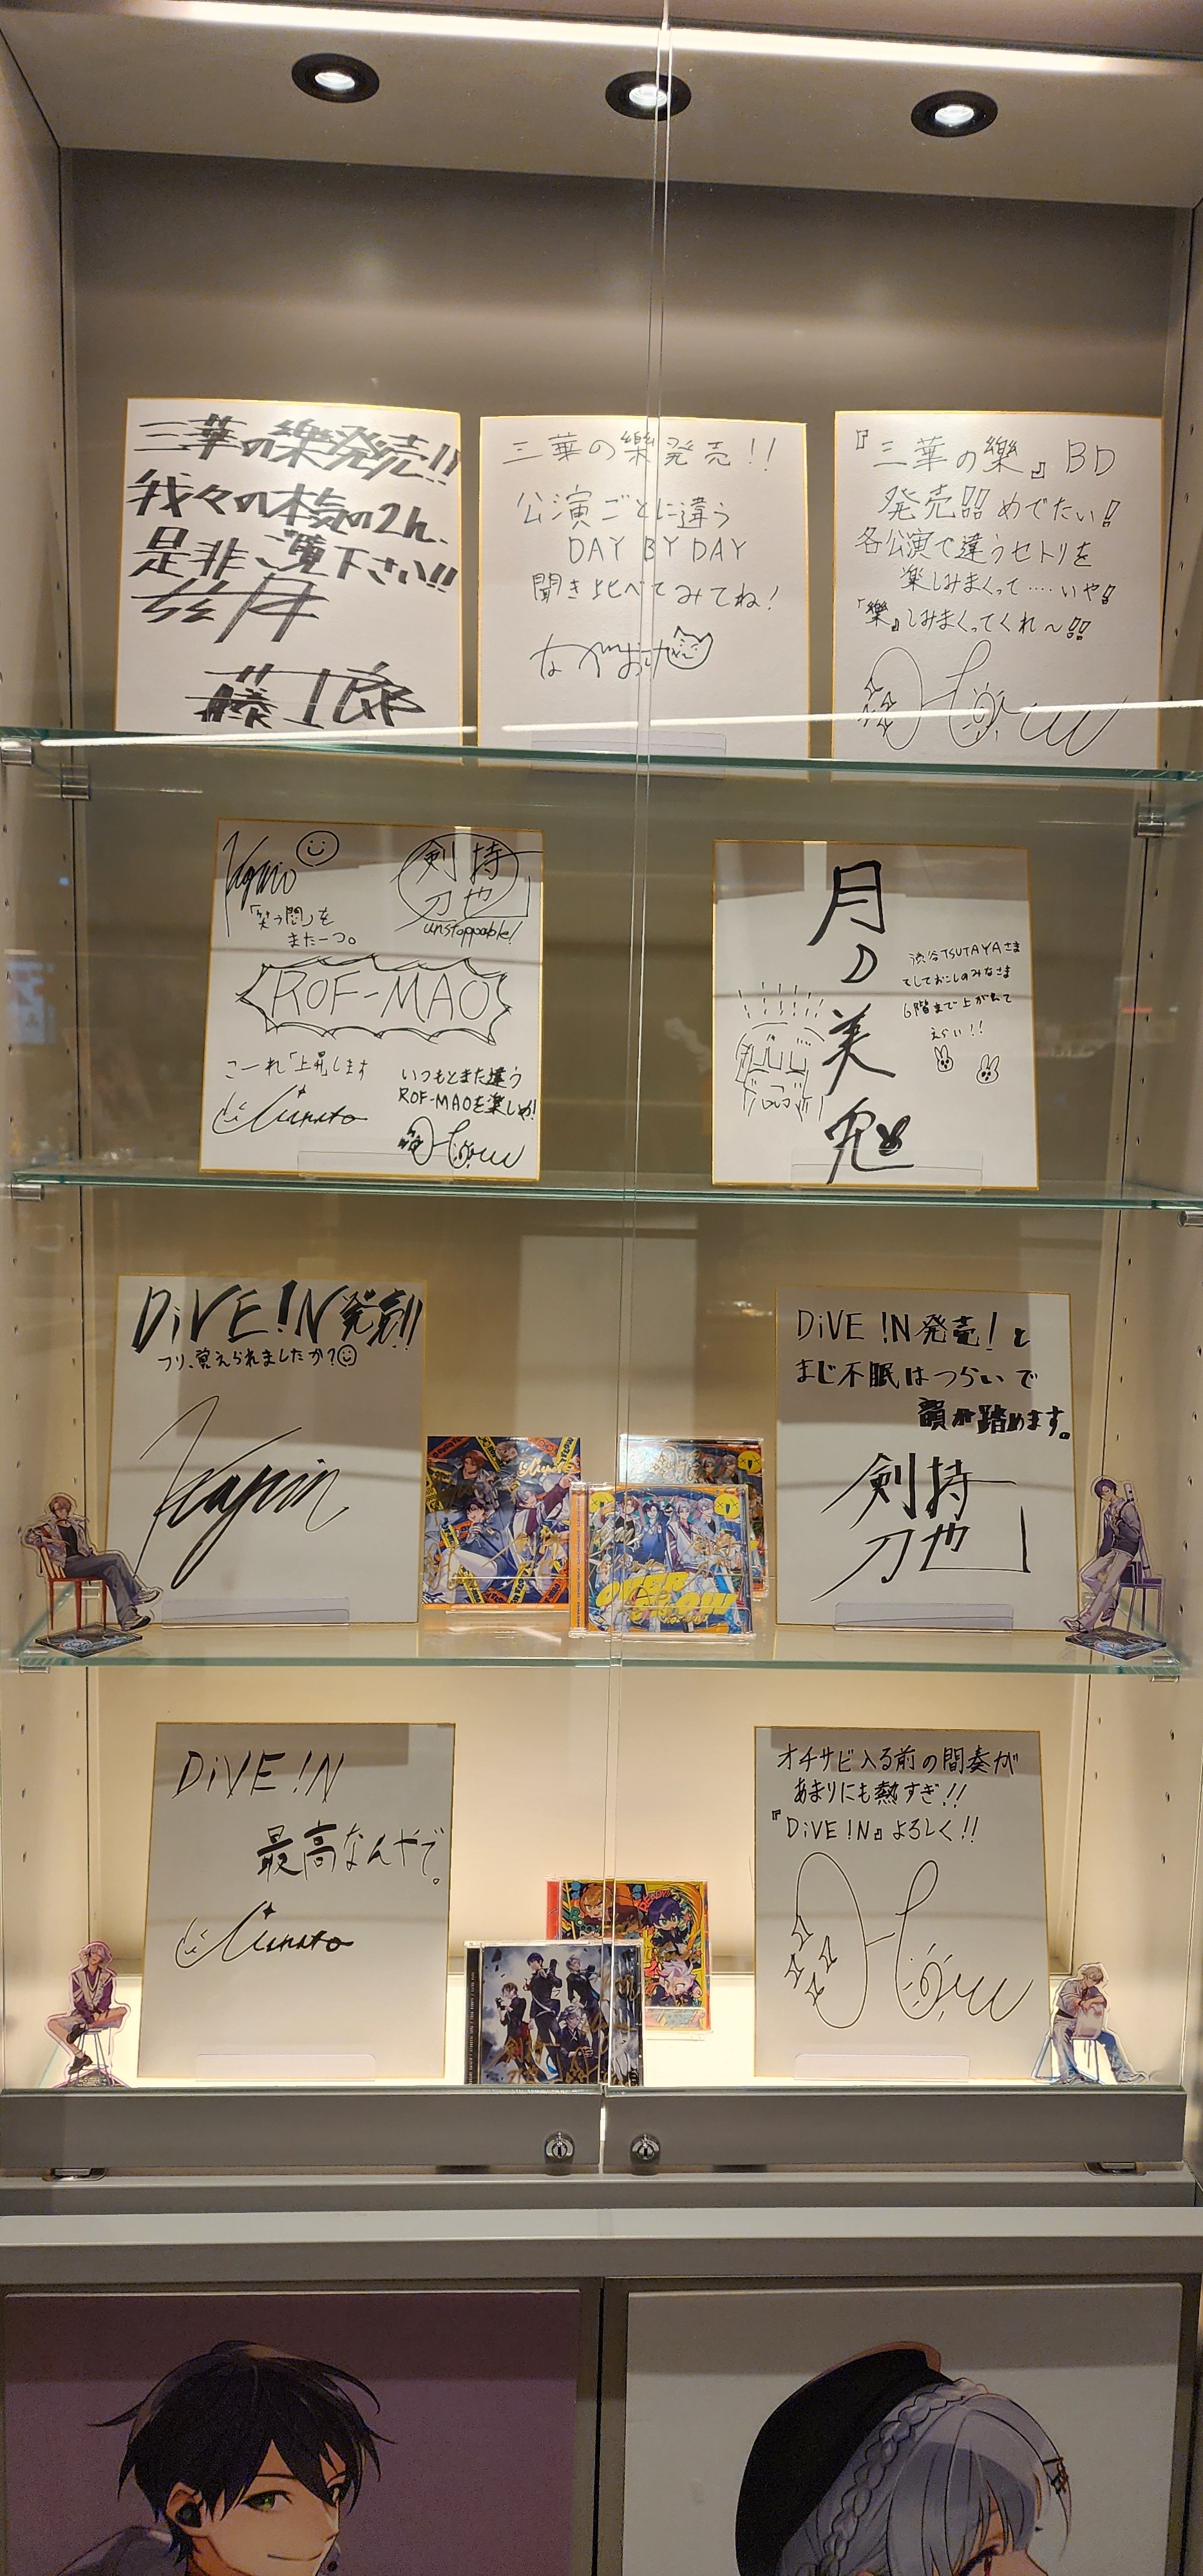 三華の樂発売!!
我々の本気の2h、
是非ご覧下さい!!
弦月
藤士郎
三華の樂発売!!
公演ごとに違う
DAY BY DAY
聞き比べてみてね!
ながおけい
『三華の樂』BD
発売!!めでたい!
各公演で違うセトリを
楽しみまくって……いや!
『樂』しみまくってくれ〜!!
Kagami
「笑う門」を
また一つ。
剣持
刀也
unstoppable!
ROF-MAO
こーれ「上昇」します
Minato
いつもとまた違う
ROF-MAOを楽しめ!
月
ノ
美
兎
渋谷TSUTAYAさま
そしておこしのみなさま
6階まで上がれて
えらい!!
DiVE !N 発売!!
フリ、覚えられましたか?
Kagami
DiVE !N 発売!と
まじ不眠はつらいで
韻が踏めます。
剣持
刀也
OVER
FLOW
DiVE !N
最高なんやで。
Minato
オチサビ入る前の間奏が
あまりにも熱すぎ!!
『DiVE !N』よろしく!!